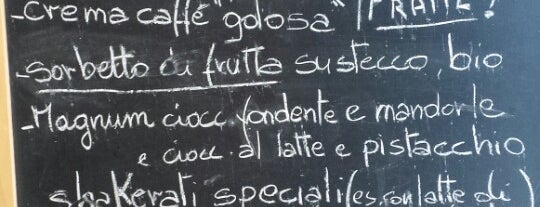 -Crema caffé "golosa"
PRALL !
-Sorbetto di frutta su stecco, bio
-Magnum ciocc. fondente e mandorle
e ciocc. al latte e pistacchio
shakerati speciali (es. con latte di)